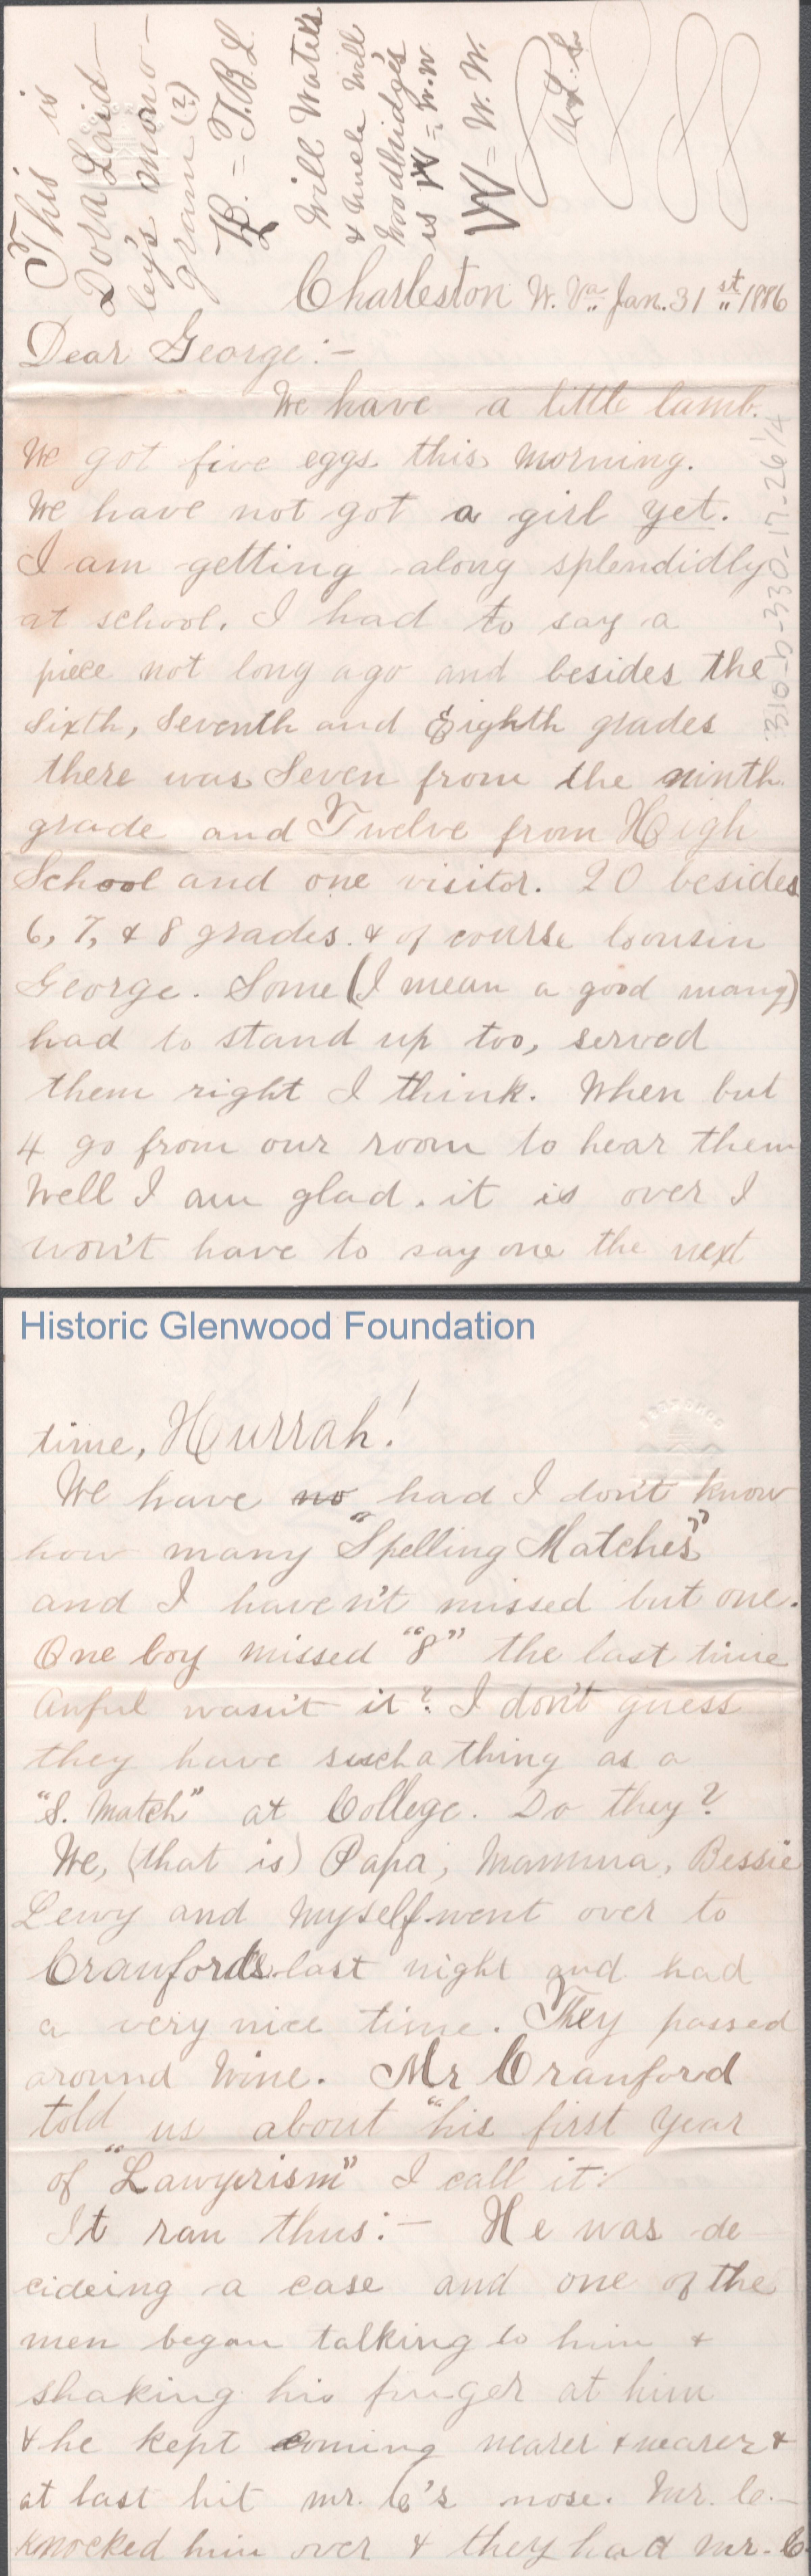 This is
Dora Laid-
ley's mono-
gram (?)
= T.B.L.
Will Waters
& Uncle Will
Woodbridge's
is W = W.W
W = W. W.
Charleston W. Va. Jan. 31st 1886
Dear George:-
We have a little lamb.
We got five eggs this morning.
We have not got a girl yet.
I am getting along splendidly
at school. I had to say a
piece not long ago and besides the
Sixth, Seventh and Eighth grades
there was Seven from the ninth
grade and Twelve from High
School and one visitor. 20 besides
6, 7, & 8 grades. & of course Cousin
George. Some (I mean a good many)
had to stand up too, served
them right I think. When but
4 go from our room to hear them
Well I am glad. it is over I
won't have to say one the next
310-b-330-17-26 1/4
Historic Glenwood Foundation
time, Hurrah!
We have no had I don't know
how many "Spelling Matches"
and I haven't missed but one.
One boy missed "8" the last time
Awful wasn't it? I don't guess
they have such a thing as a
"S. Match" at College. Do they?
We, (that is) Papa, Mamma, Bessie
Lewy and myself went over to
Cranfords last night and had
a very nice time. They passed
around Wine. Mr Cranford
told us about "his first year
of "Lawyerism" I call it:
It ran thus:- He was de
cideing a case and one of the
men began talking to him &
shaking his finger at him
& he kept coming nearer & nearer &
at last hit mr. C's nose. Mr. C.-
knocked him over & they had mr. C